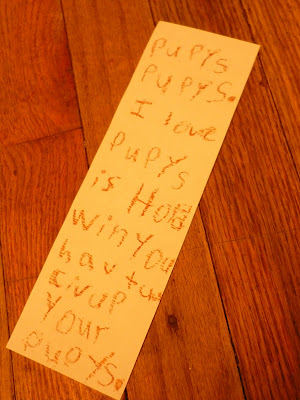 pupys
pupys.
I love
pupys
is Hob
win you
hav tu
givup
your
pupys.